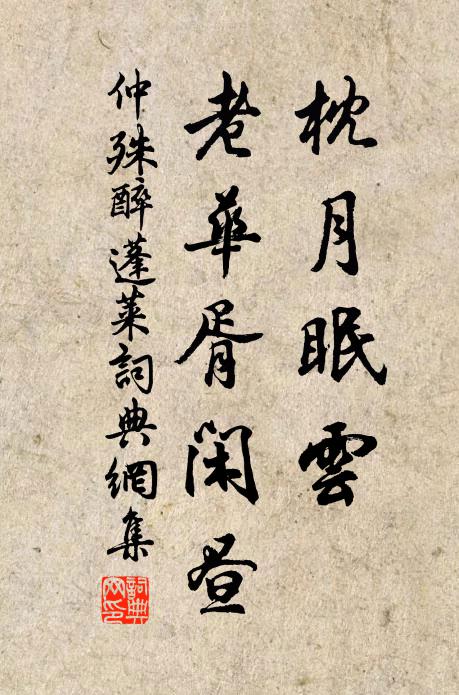 枕月眠雲
老華胥閑昼
仲殊醉蓬莱詞典網集
詞典
文印